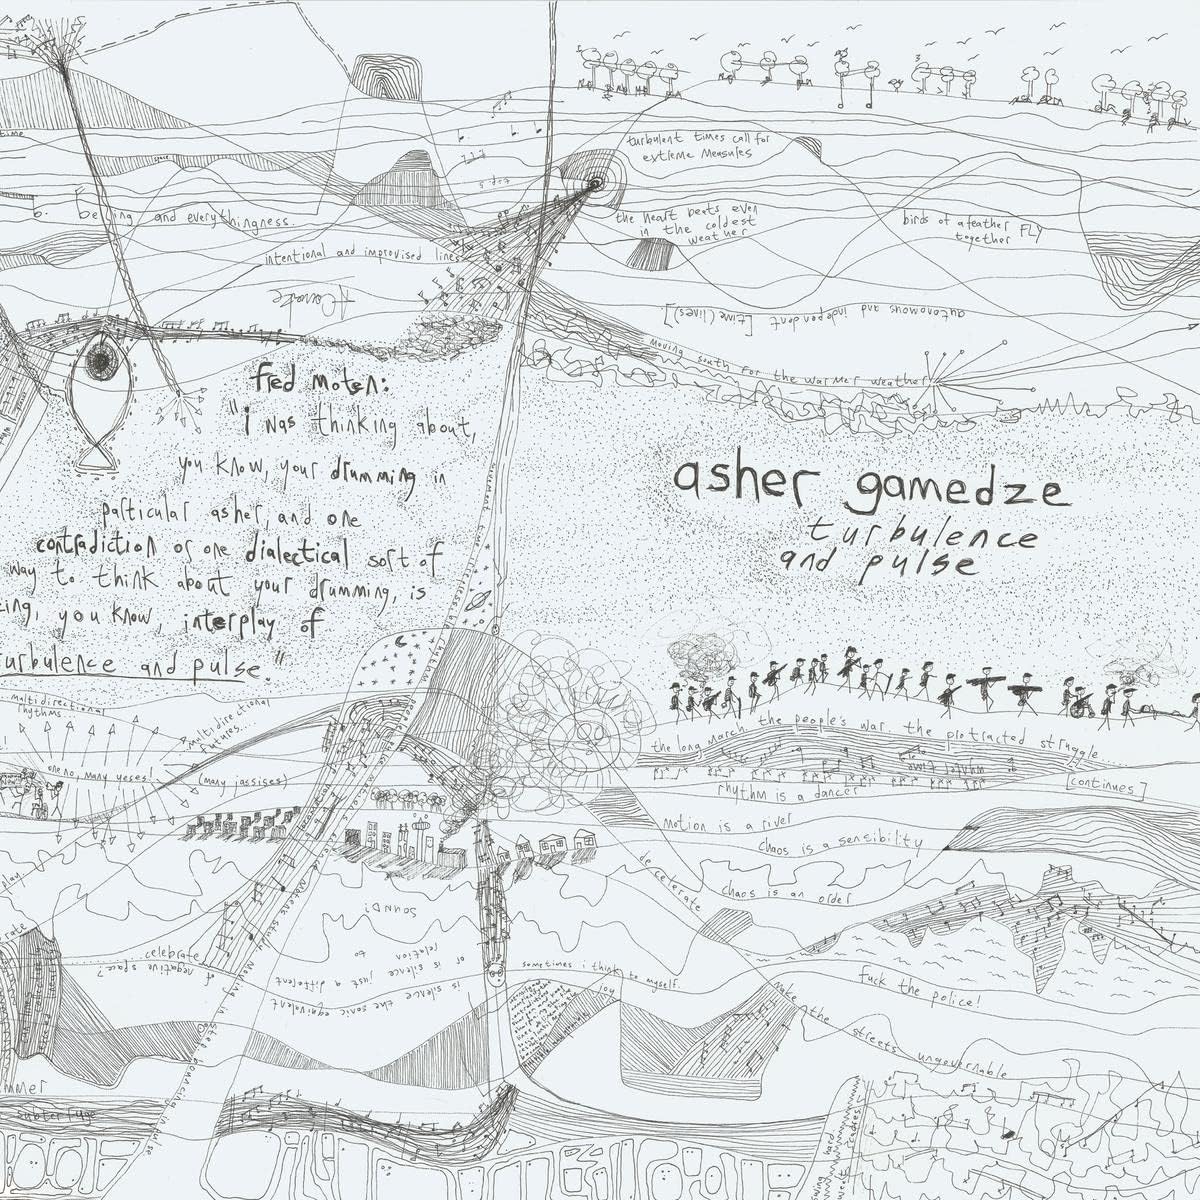 time
turbulent times call for
extreme measures
the heart beats even
in the coldest
weather
birds of a feather FLY
together
and everythingness.
intentional and improvised lines
autonomous and independent [time(lines)]
moving south for the warmer weather
fred moten:
"i was thinking about,
you know, your drumming in
particular asher, and one
contradiction or one dialectical sort of
way to think about your drumming, is
you know, interplay of
turbulence and pulse."
asher gamedze
turbulence
and pulse
multidirectional
rhythms
multidirectional
futures...
one no, many yeses!
(many jassises)
the people's war. the protracted struggle....
the long march.
[continues]
rhythm is a dancer
motion is a river
chaos is a sensibility
decelerate
chaos is an order
SOUND?
or is silence just a different
relation
to
is silence the sonic equivalent
of negative space?
celebrate
sometimes i think to myself.
joy
fuck the police!
make the streets ungovernable
subterfuge